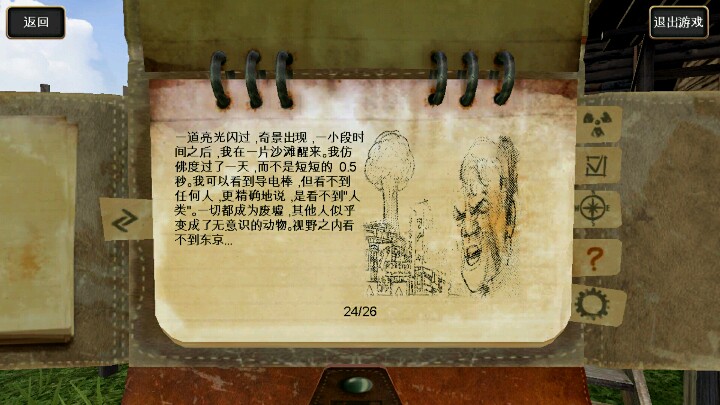 返回
退出游戏
一道亮光闪过,奇景出现,一小段时
间之后,我在一片沙滩醒来。我仿
佛度过了一天,而不是短短的 0.5
秒。我可以看到导电棒,但看不到
任何人,更精确地说,是看不到"人
类"。一切都成为废墟,其他人似乎
变成了无意识的动物。视野之内看
不到东京...
24/26
?